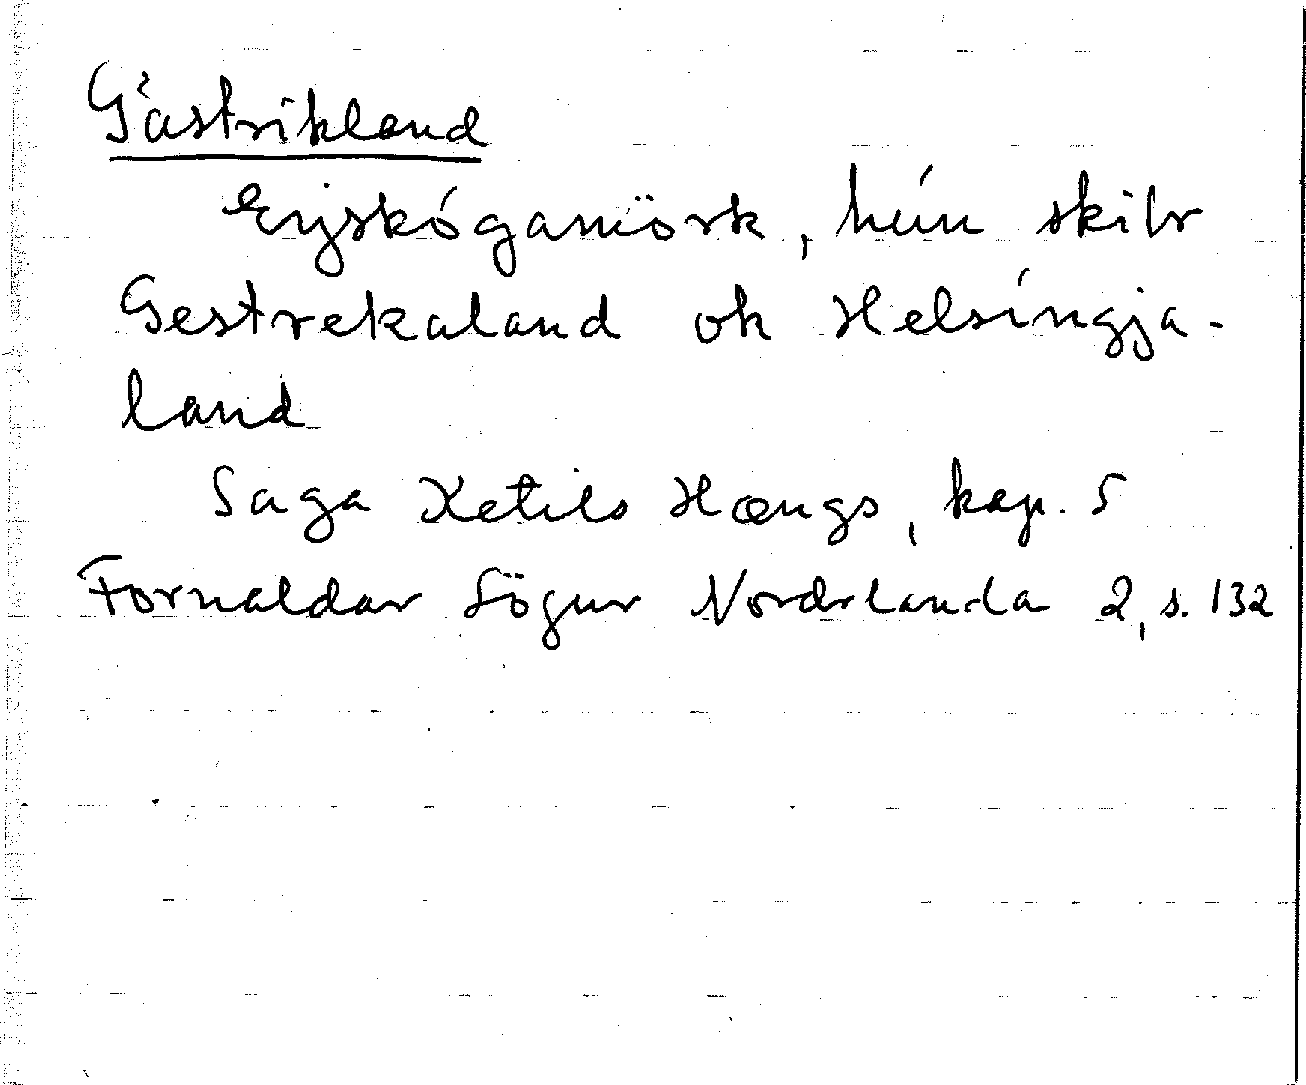 Gästrikland
Eyskógamörk, hún skilr
Gestrekaland ok Helsíngja-
land
Saga Ketils Hængs, kap. 5
Fornaldar Sögur Nordrlanda 2, s. 132